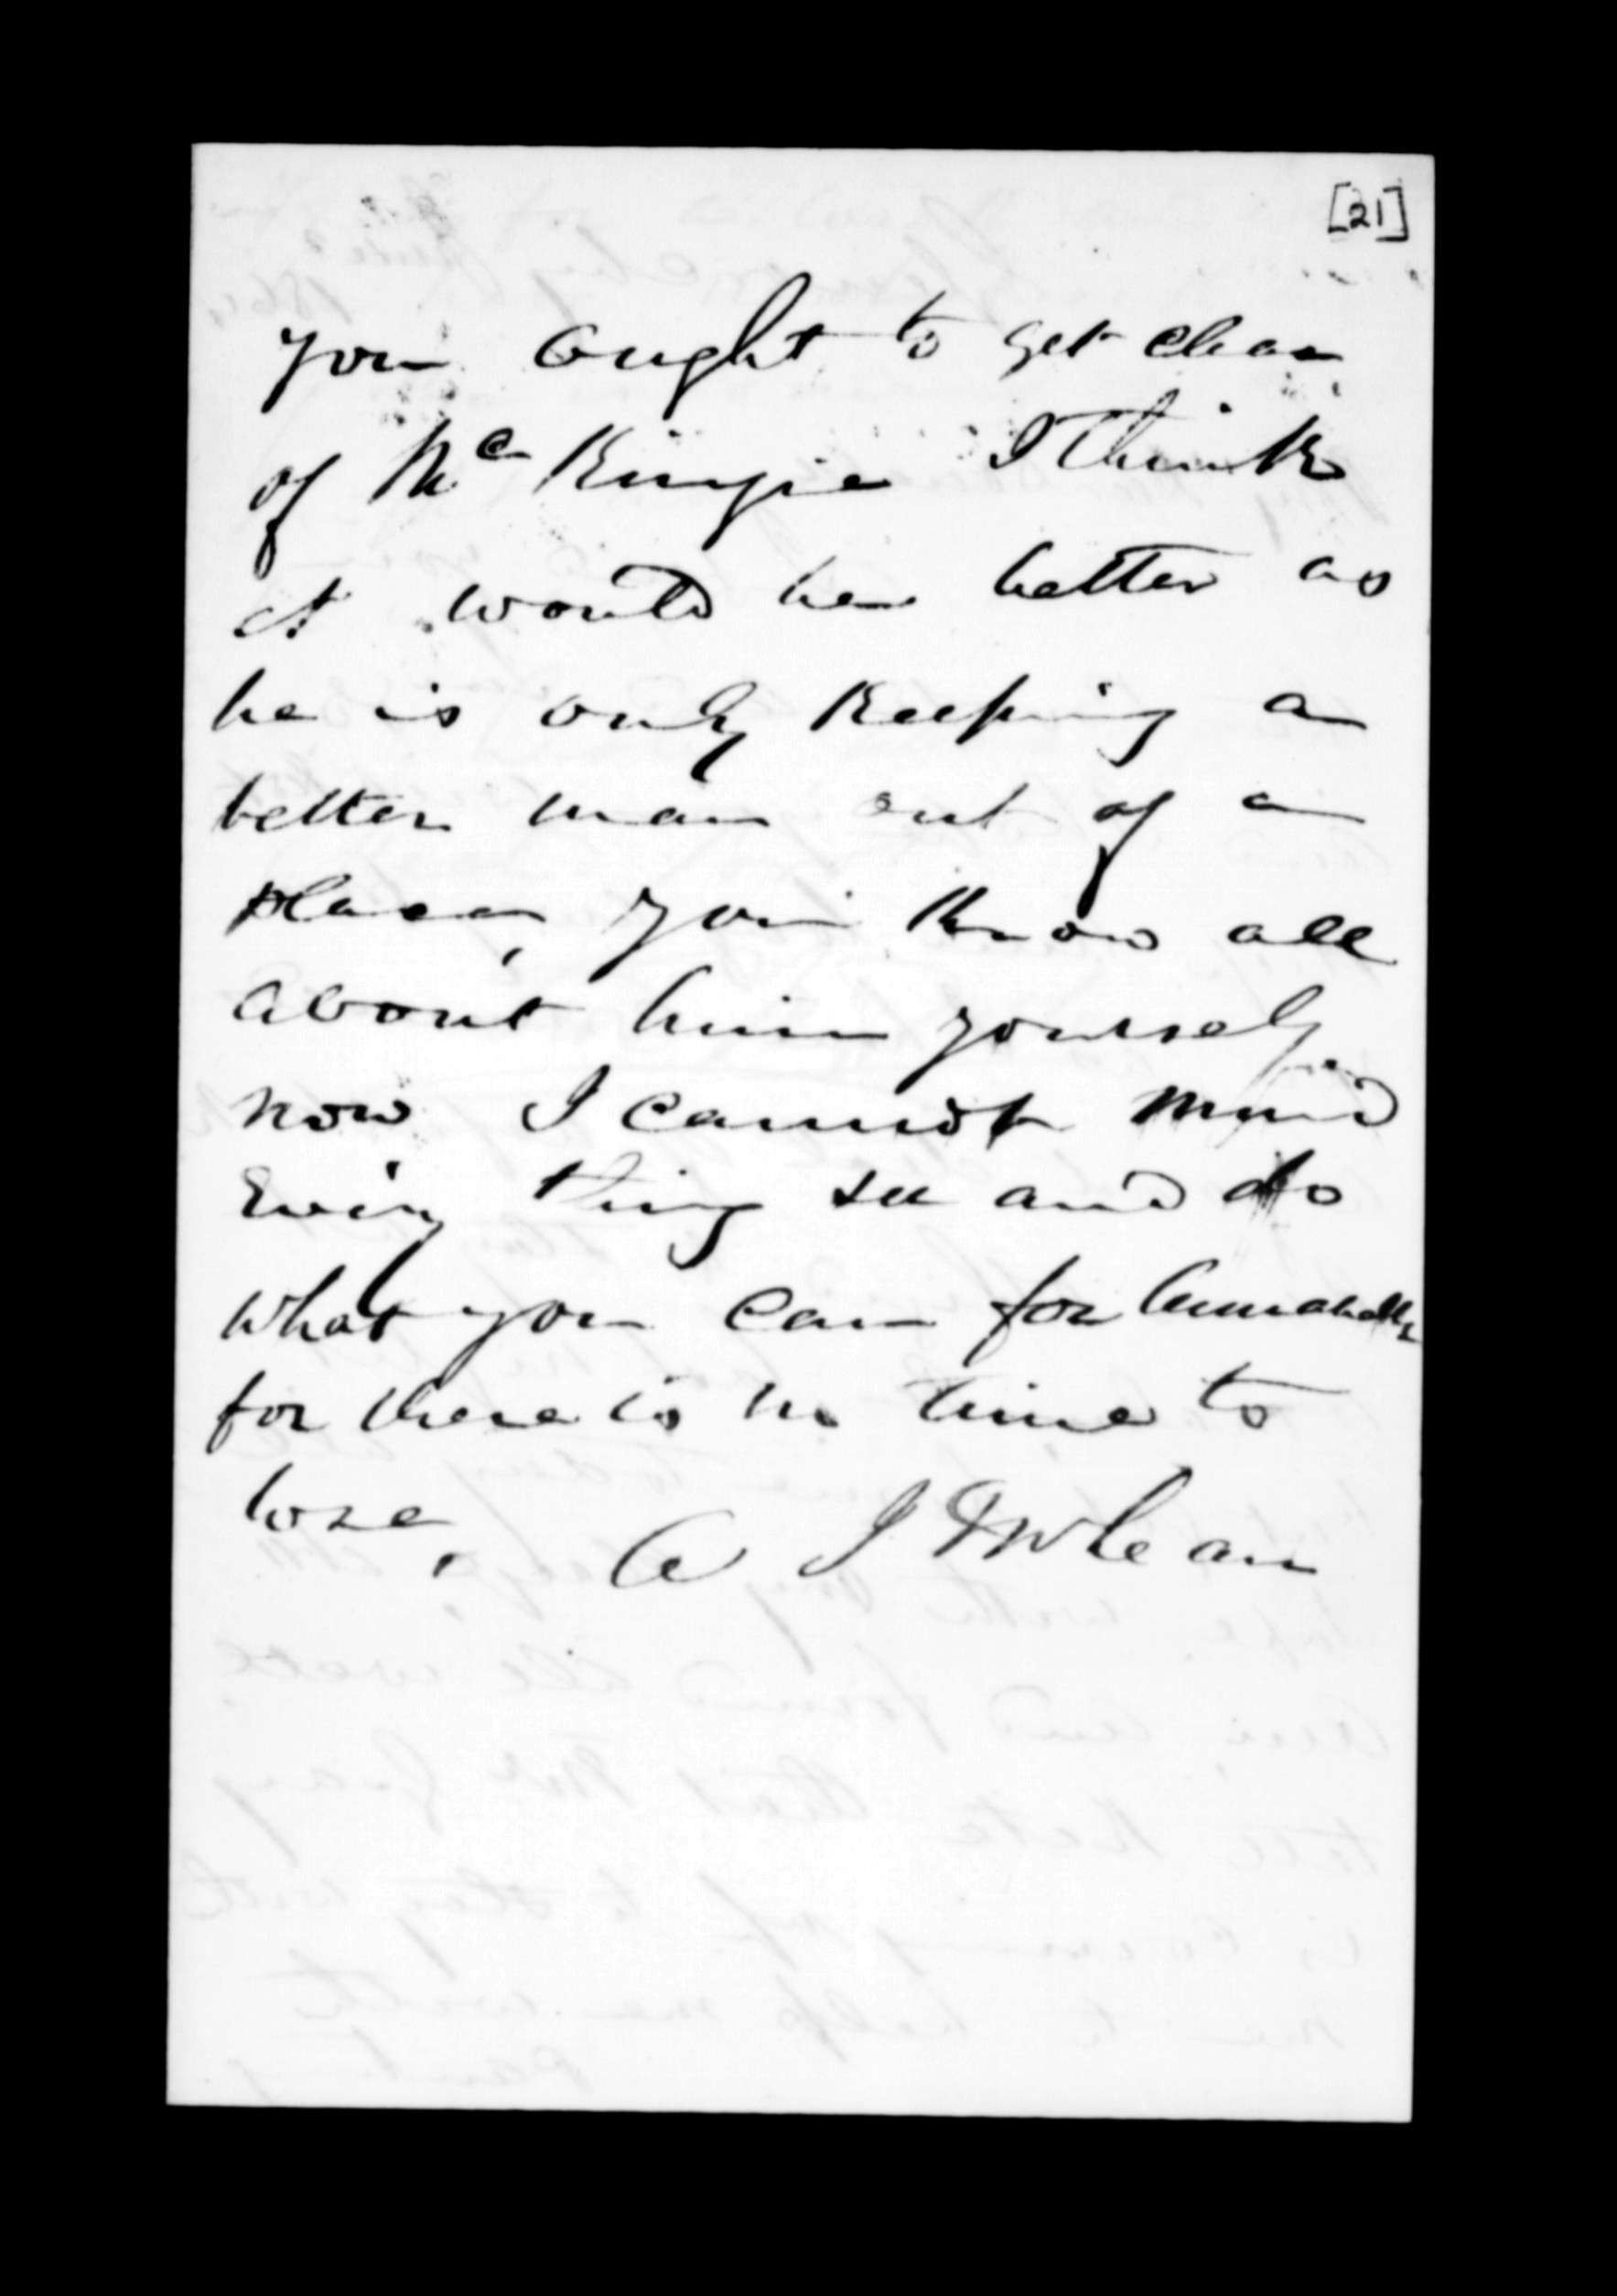 [21]
you ought to get clear
of Mc Kinzie I think
it would be better as
he is only keeping a
better man out of a
place, you know all
about him yourself
now I cannot mind
Every thing see and do
what you can for Annabella
for there is no time to
lose, A J McLean